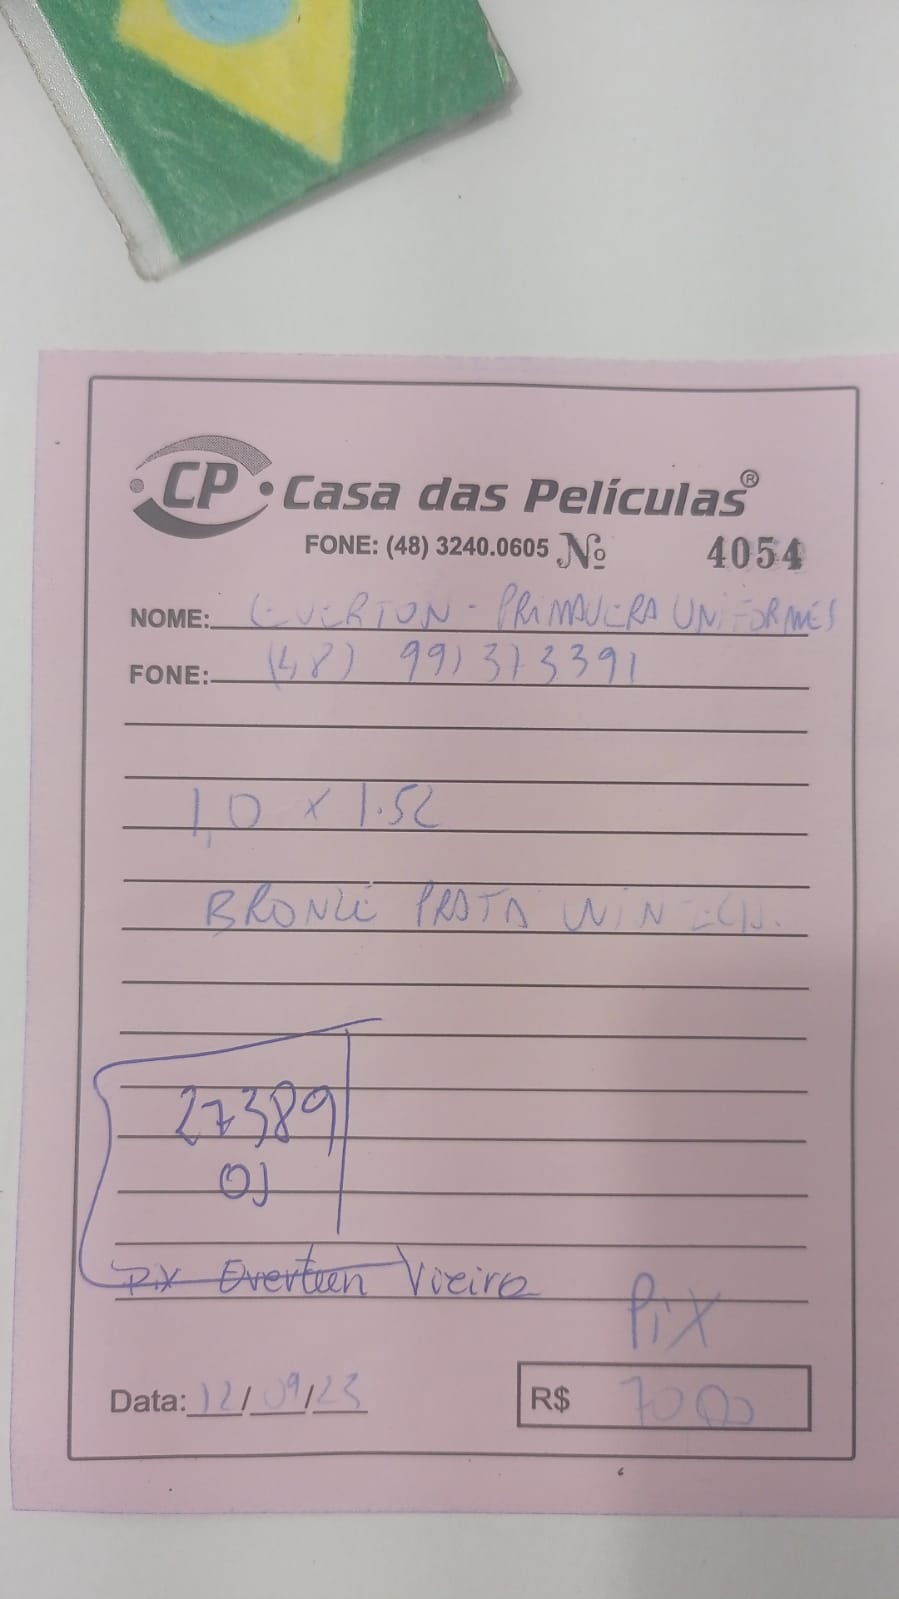 CP Casa das Películas®
FONE: (48) 3240.0605 Nº 4054
NOME: EVERTON - PRIMAVERA UNIFORMES
FONE: (48) 991373391
1,0 x 1.52
BRONZE PRATA
27389
Pix Everteen Vieira
Pix
Data: 12/09/23 R$ 70,00